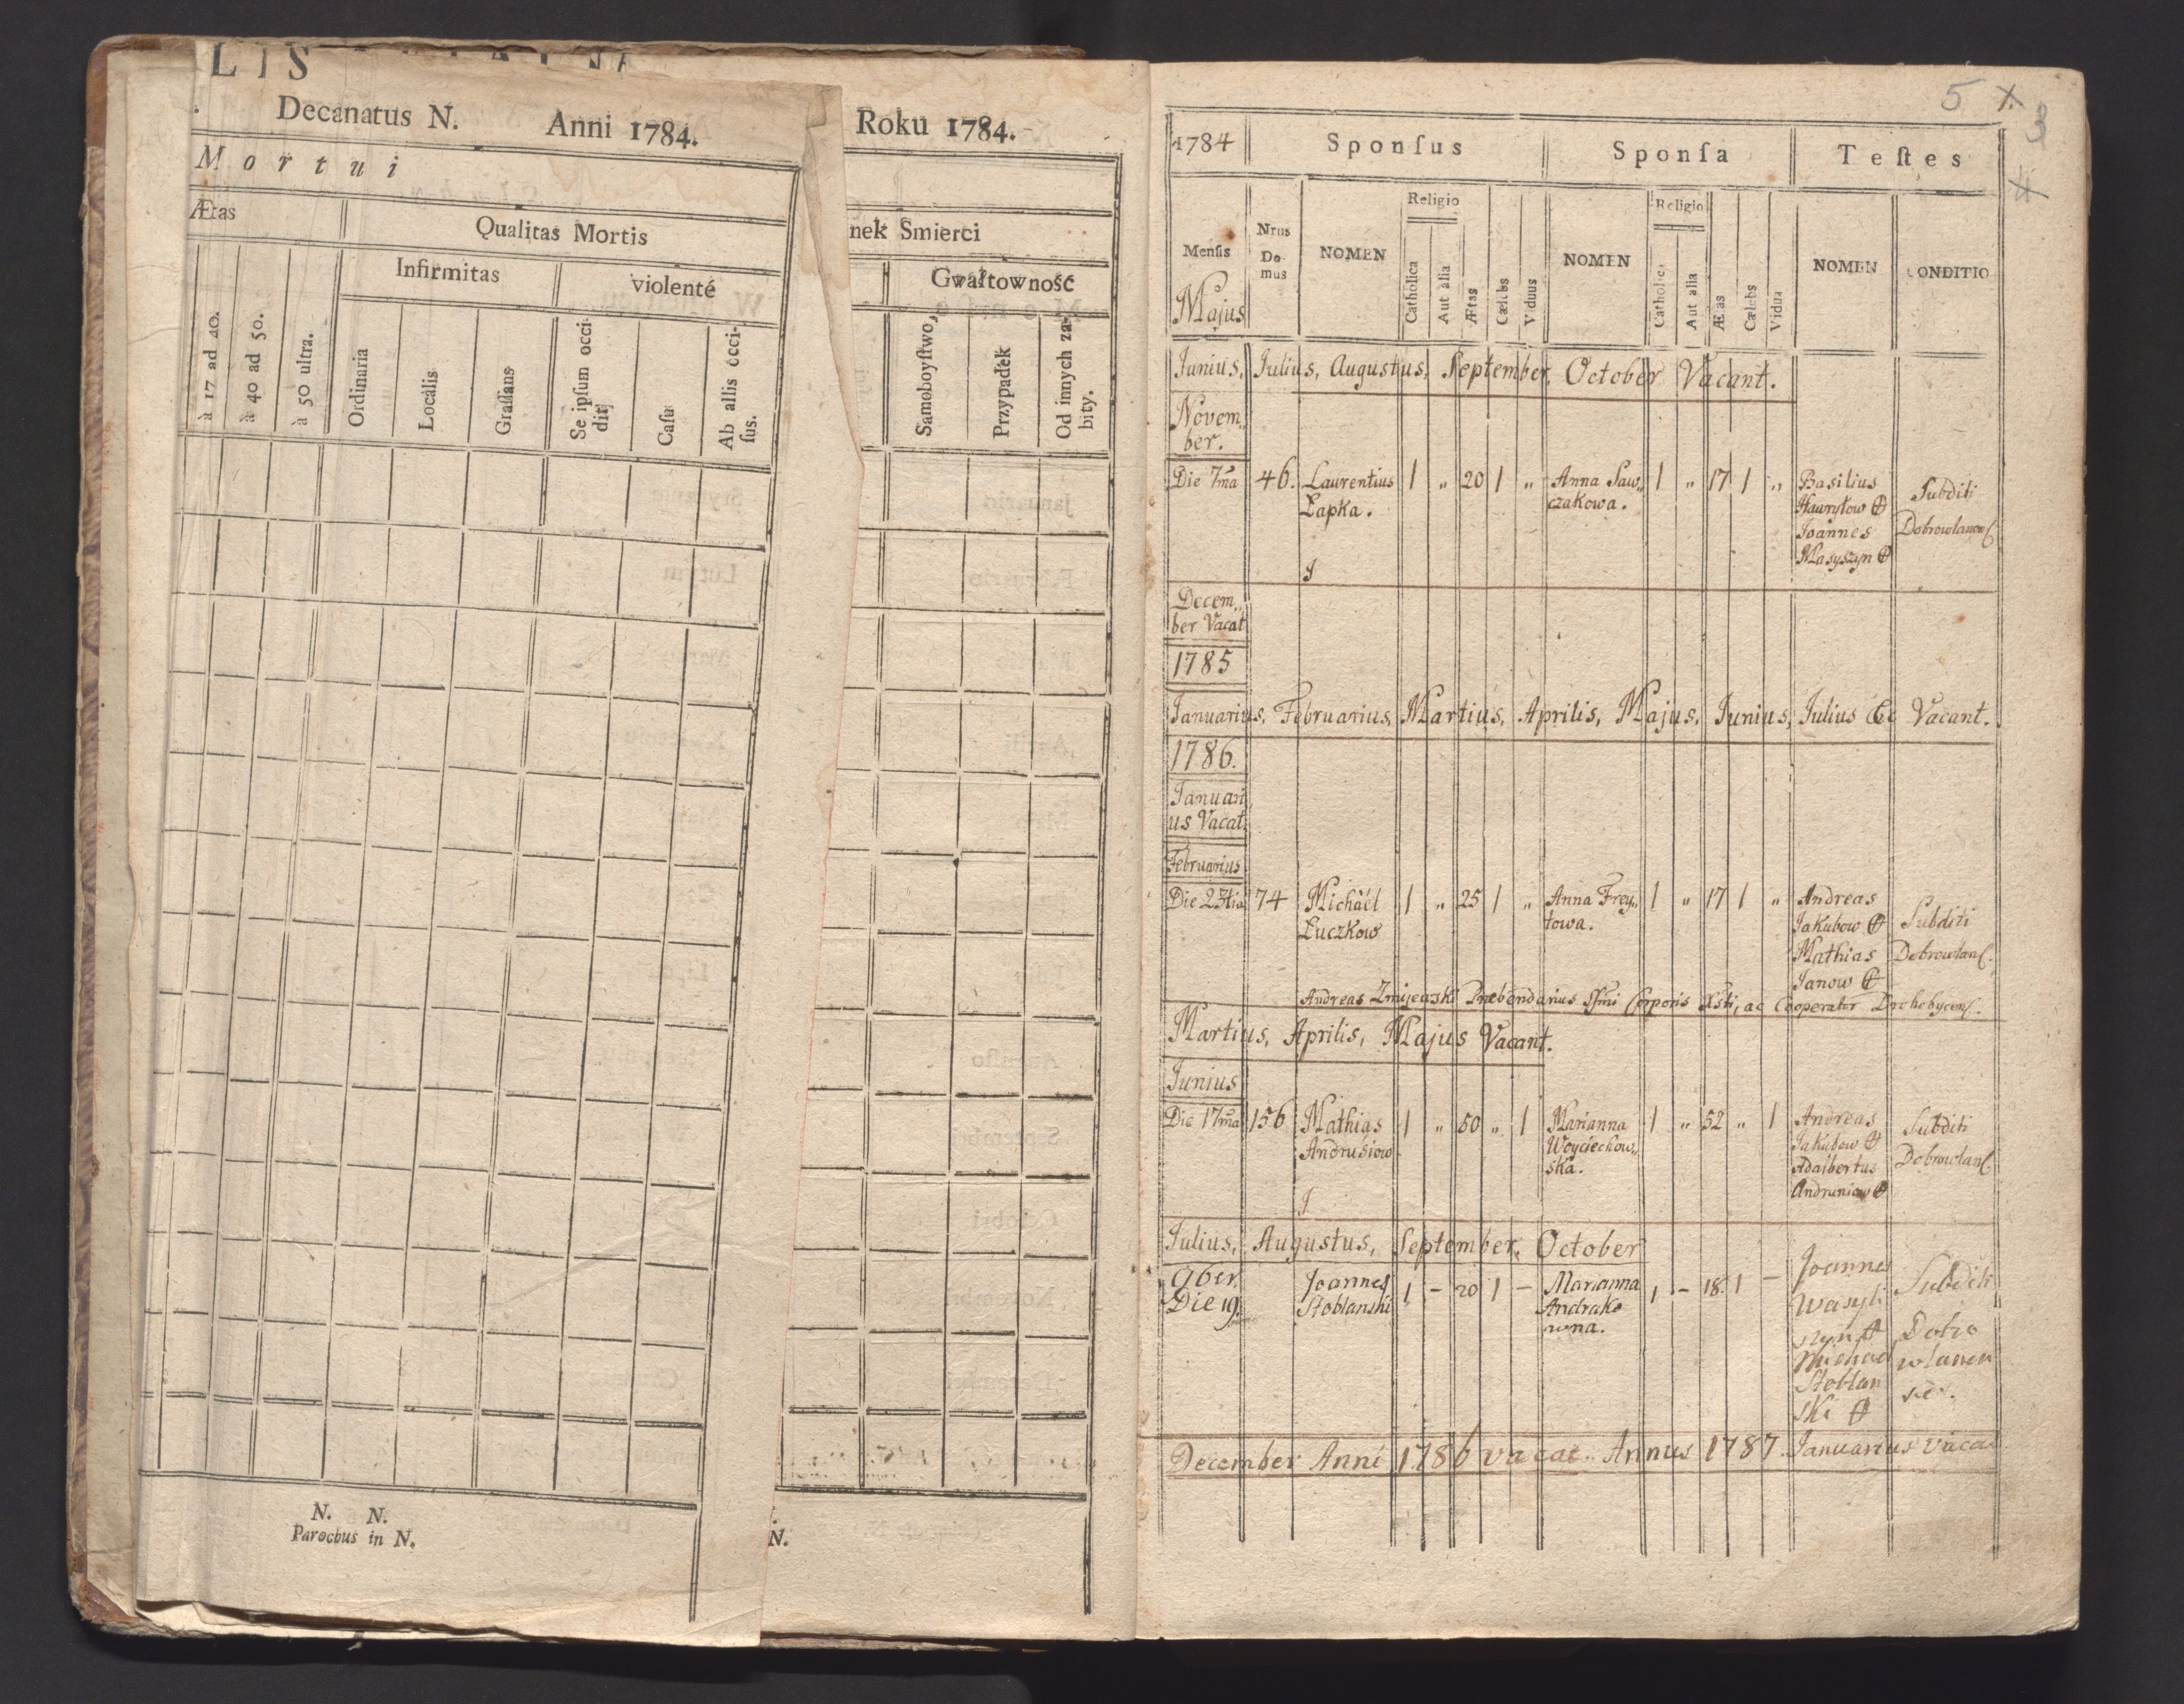 Decanatus N. Anni 1784.
Mortui
Ætas
Qualitas Mortis
Infirmitas
violenté
à 17 ad 40.
à 40 ad 50.
à 50 ultra.
Ordinaria
Locális
Graſſans
Se ipſum occi-
dit
Caſu
Ab aliis occi-
ſus.
N. N.
Parochus in N.
Roku 1784.
nek Smierci
Gwałtowność
Samoboyſtwo
Przypadek
Od innych za-
bity.
N.
5
3
4
1784
Sponſus
Sponſa
Teſtes
Menſis
Majus
Nrus
Do-
mus
NOMEN
Religio
Catholica
Aut alia
Ætas
Cælebs
Viduus
NOMEN
Religio
Catholica
Aut alia
Ætas
Cælebs
Vidua
NOMEN
CONDITIO
Junius, Julius, Augustus, September, October Vacant.
Novem„
ber.
Die 7ma 46. Laurentius 1 „ 20 1 „ Anna Saw„ 1 „ 17 1 „ Basilius
Łapka. czakowa. Hawryłow
Subditi
Joannes Dobrowlanens
Masyszyn
Decem„
ber Vacat
1785
Januarius, Februarius, Martius, Aprilis, Majus, Junius, Julius &c Vacant.
1786.
Januari
us Vacat.
Februarius
Die 23tia 74 Michaël 1 „ 25 1 „ Anna Frey„ 1 „ 17 1 „ Andreas
Łuczkow towa. Jakubow Subditi
Mathias Dobrowlans.
Janow
Andreas Zmijewski Præbendarius Ssmi Corporis Xsti, ac Cooperator Drohobycens.
Martius, Aprilis, Majus Vacant.
Junius
Die 17ma 156 Mathias 1 „ 50 „ 1 Marianna 1 „ 52 „ 1 Andreas Subditi
Andrusiow Woyciechow„ Jakubow
ska. Adalbertus Dobrowlans
Andruniow
Julius, Augustus, September, October
9ber Joannes 1 – 20 1 – Marianna 1 – 18 1 – Joannes Subditi
Die 19. Stoblanski Andrako Wasyli
wna. szyn Dobro
Michael wlanen
Stoblan ses.
ski
December Anni 1786 vacat. Annus 1787. Januarius vacat